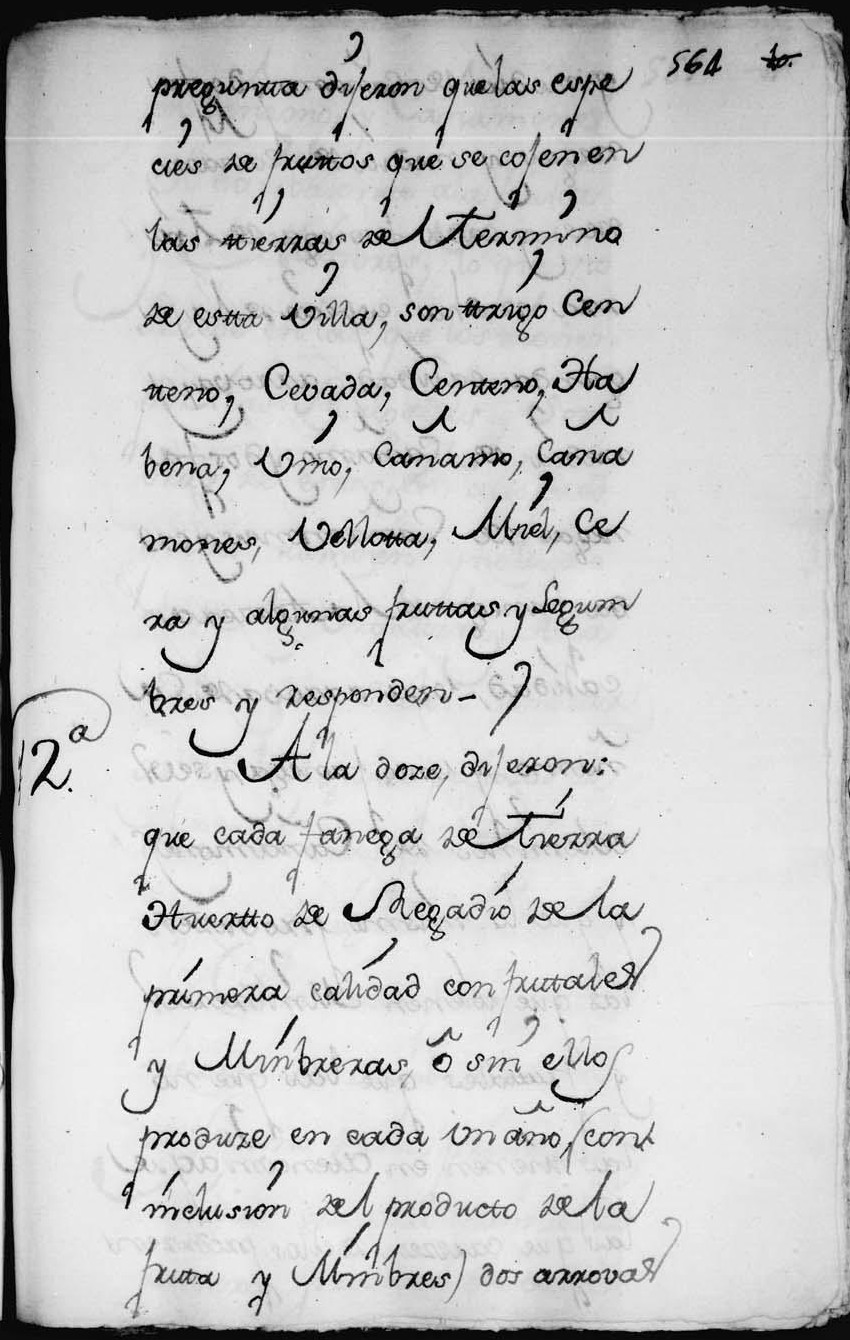 564
preguntta dijeron que las espe
cies de fruttos que se cojen en
las ttierras del término
de estta Villa, son ttrigo Cen
tteno, Cevada, Centteno, Ha
bena, Vino, Cañamo, Caña
mones, Vellotta, Miel, Ce
ra y algunas fruttas y Legum
bres y responden-
12.ª
A la doze, dijeron:
que cada fanega de tierra
Huertto de Regadio de la
primera calidad con fruttales
y Minbreras, ô sin ellos
produze en cada Un año, (con
inclusion del producto de la
frutta y Minbres) dos arrovas